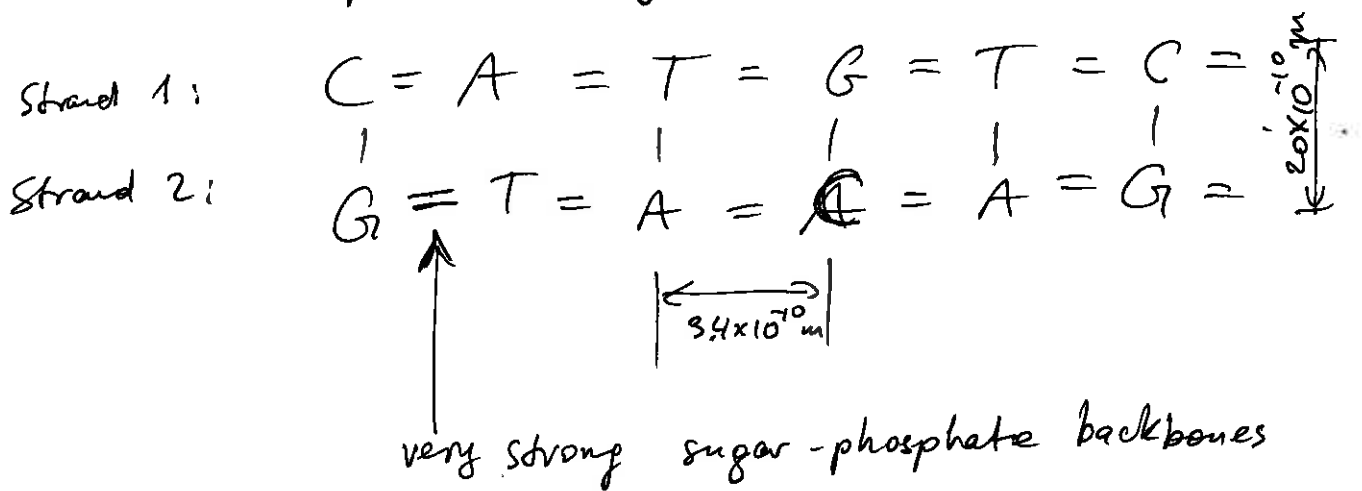 Strand 1: C = A = T = G = T = C =
| | | | |
Strand 2: G = T = A = C = A = G =
20×10⁻¹⁰ m
3.4×10⁻¹⁰ m
very strong sugar-phosphate backbones